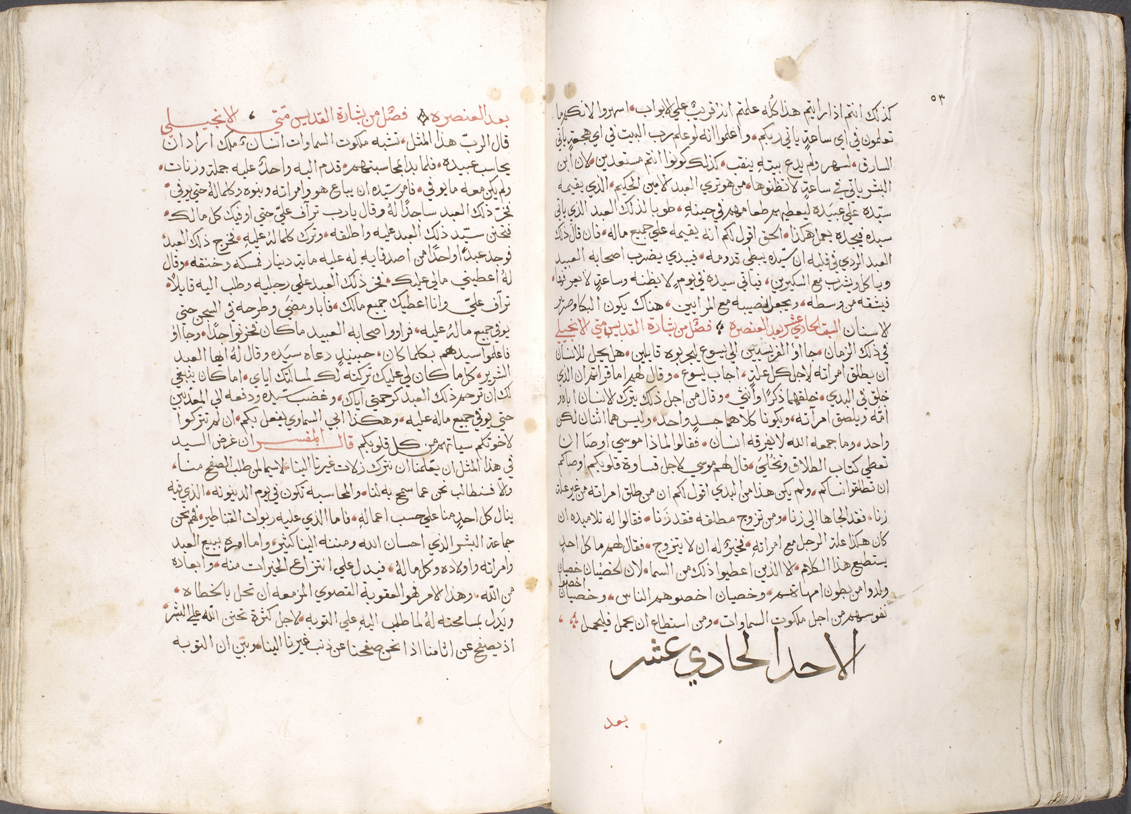 ٥٣
كذلك انتم اذا رايتم هذا كله علمتم انه قريب علي الابواب اسهروا لانكم ما
تعلمون في اي ساعة ياتي ربكم واعلموا انه لو علم رب البيت في اي هجعة ياتي
السارق لسهر ولم يدع بيته ينقب كذلك كونوا انتم مستعدين لان ابن
البشر ياتي في ساعة لا تظنوها من هو تري العبد الامين الحكيم الذي يقيمه
سيده علي عبيده ليعطيهم طعامهم في حينه طوبا لذلك العبد الذي ياتي
سيده فيجده يعمل هكذا الحق اقول لكم انه يقيمه علي جميع ماله فان قال ذلك
العبد الردي في قلبه ان سيده يبطي قدومه فيبدي يضرب اصحابه العبيد
وياكل ويشرب مع السكيرين فياتي سيده في يوم لا يظنه وساعة لا يعرفها
فيشقه من وسطه ويجعل نصيبه مع المرايين هناك يكون البكا وصرير
الاسنان السبت الحادي عشر بعد العنصره فصل من بشارة القديس متي الانجيلي
في ذلك الزمان جااو الفريسيين الي يسوع ليجربوه قايلين هل يحل للانسان
ان يطلق امراته لاجل كل علة اجاب يسوع وقال لهم اما قراتم ان الذي
خلق في البدي خلقهما ذكرا وانثي وقال من اجل ذلك يترك الانسان اباه و
امه ويلصق امراته ويكونا كلاهما جسد واحد وليس هما اثنان لكن
واحد وما جمعه الله لا يفرقه انسان فقالوا لماذا موسي اوصا ان
تعطي كتاب الطلاق وتخلي قال لهم موسي لاجل قساوة قلوبكم اوصاكم
ان تطلقوا نساكم ولم يكن هذا من البدي اقول لكم ان من طلق امراته من غير علة
زنا فقد لجاها الي زنا ومن تزوج مطلقه فقد زنا فقالوا له تلاميذه ان
كان هكذا علة الرجل مع امراته فخير له ان لا يتزوج فقال لهم ما كل احد
يستطيع هذا الكلام الا الذين اعطيوا ذلك من السما لان الخصيان خصيان
ولدوا من بطون امهاتهم وخصيان اخصوهم الناس وخصيان اخصوا
نفوسهم من اجل ملكوت السماوات ومن استطاع ان يحمل فليحمل
الاحد الحادي عشر
بعد
بعد العنصره فصل من بشارة القديس متي الانجيلي
قال الرب هذا المثل تشبه ملكوت السماوات انسان ملك اراد ان
يحاسب عبيده فلما بدا بمحاسبتهم قدم اليه واحد عليه جملة وزنات
ولم يكن معه ما يوفي فامر سيده ان يباع هو وامراته وبنوه وكلماله حتي يوفي
فخر ذلك العبد ساجدا له وقال يا رب تراف علي حتي اوفيك كل مالك
فتحنن سيد ذلك العبد عليه واطلقه وترك كلماله عليه فخرج ذلك العبد
فوجد عبدا واحدا من اصدقايه له عليه ماية دينار فمسكه وخنقه وقال
له اعطيني مالي عليك فخر ذلك العبد علي رجليه وطلب اليه قايلا
تراف علي وانا اعطيك جميع مالك فابا ومضي وطرحه في السجن حتي
يوفي جميع ماله عليه فراوا اصحابه العبيد ما كان فحزنوا جدا وجااو
فاعلموا سيدهم بكلما كان حينيذ دعاه سيده وقال له ايها العبد
الشرير كل ما كان لي عليك تركته لك لمسالتك اياي اما كان ينبغي
لك ان ترحم ذلك العبد كرحمتي اياك وغضب سيده ودفعه الي المعذبين
حتي يوفي جميع ماله عليه وهكذا ابي السماوي يفعل بكم ان لم تتركوا
لاخوتكم سياتهم من كل قلوبكم قال المفسر ان غرض السيد
في هذا المثل ان يعلمنا ان نترك زلات غيرنا الينا لاسيما لمن طلب الصفح منا
والا فنطالب نحن عما سمح به لنا والمحاسبه تكون في يوم الدينونه الذي فيه
ينال كل احد منا علي حسب اعماله فاما الذي عليه ربوات القناطير فهم نحن
جماعة البشر الذي احسان الله ومننه الينا كثير واما امره ببيع العبد
وامراته واولاده وكل ماله فيدل علي انتزاع الخيرات منه وابعاده
من الله وهذا الامر فهو العقوبة القصوي المزمعه ان تحل بالخطاه
ويدل بمسامحته له لما طلب اليه علي التوبه لاجل كثرة تحنن الله علي البشر
اذ يصفح عن اثامنا اذا نحن صفحنا عن ذنب غيرنا الينا ويبين ان التوبه